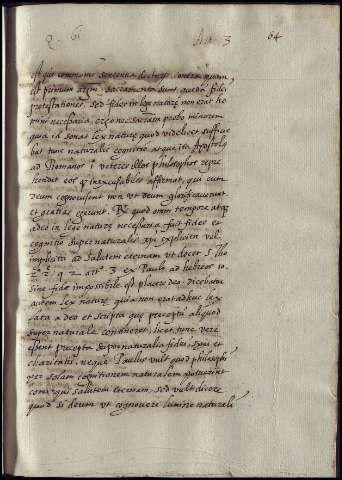 q. 61 Ar. 3 64
A qui communis sententia doctorum, contra quam
est primum argm. sacramenta sunt quedã fidei
protestationes, sed fides in lege nature non erat ho
mini necessaria, ergo nec sacram. probo minorem
quia id sonat lex nature quod videlicet suffice
bat tunc naturalis cognitio
ad Romanos 1 veteres illos philosophos repre
hendit eos q inexcusabiles affirmat, qui cum
deum cognovissent non vt deum glorificaverunt
et gratias egerunt. R. quod omni tempore atq
adeo in lege nature necessaria fuit fides et
cognitio supernaturalis xpi explicita vel
implicita ad salutem eternam vt docet S. Tho
2ª 2ę q 2 art. 3 ex Paulo ad hebreos 10
sine fide impossibile est placere deo. dicebatur
autem lex nature quia non erat adhuc lex
lata a deo et scripta que precepta aliquod
supernaturale contineret, licet tunc vere
essent precepta supernaturalia fidei, spei et
charitatis. neque Paulus vult quod philosophi
per solam cognitionem naturalem potuerint
consequi salutem eternam, sed vult dicere
quod si deum vt cognovere lumine naturali